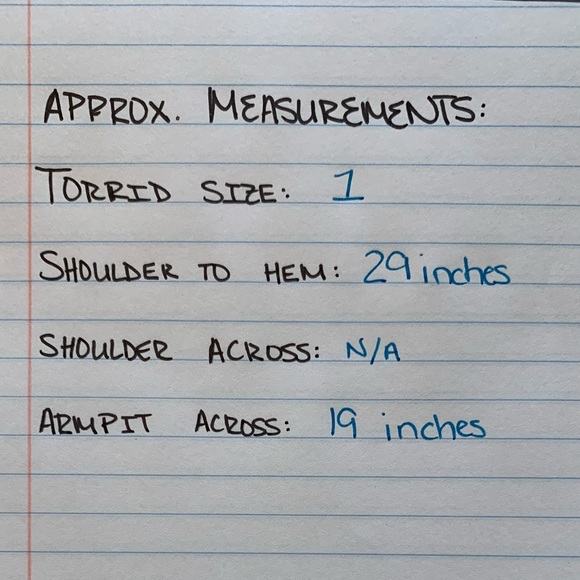 APPROX. MEASUREMENTS:
TORRID SIZE: 1
SHOULDER TO HEM: 29 inches
SHOULDER ACROSS: N/A
ARMPIT ACROSS: 19 inches